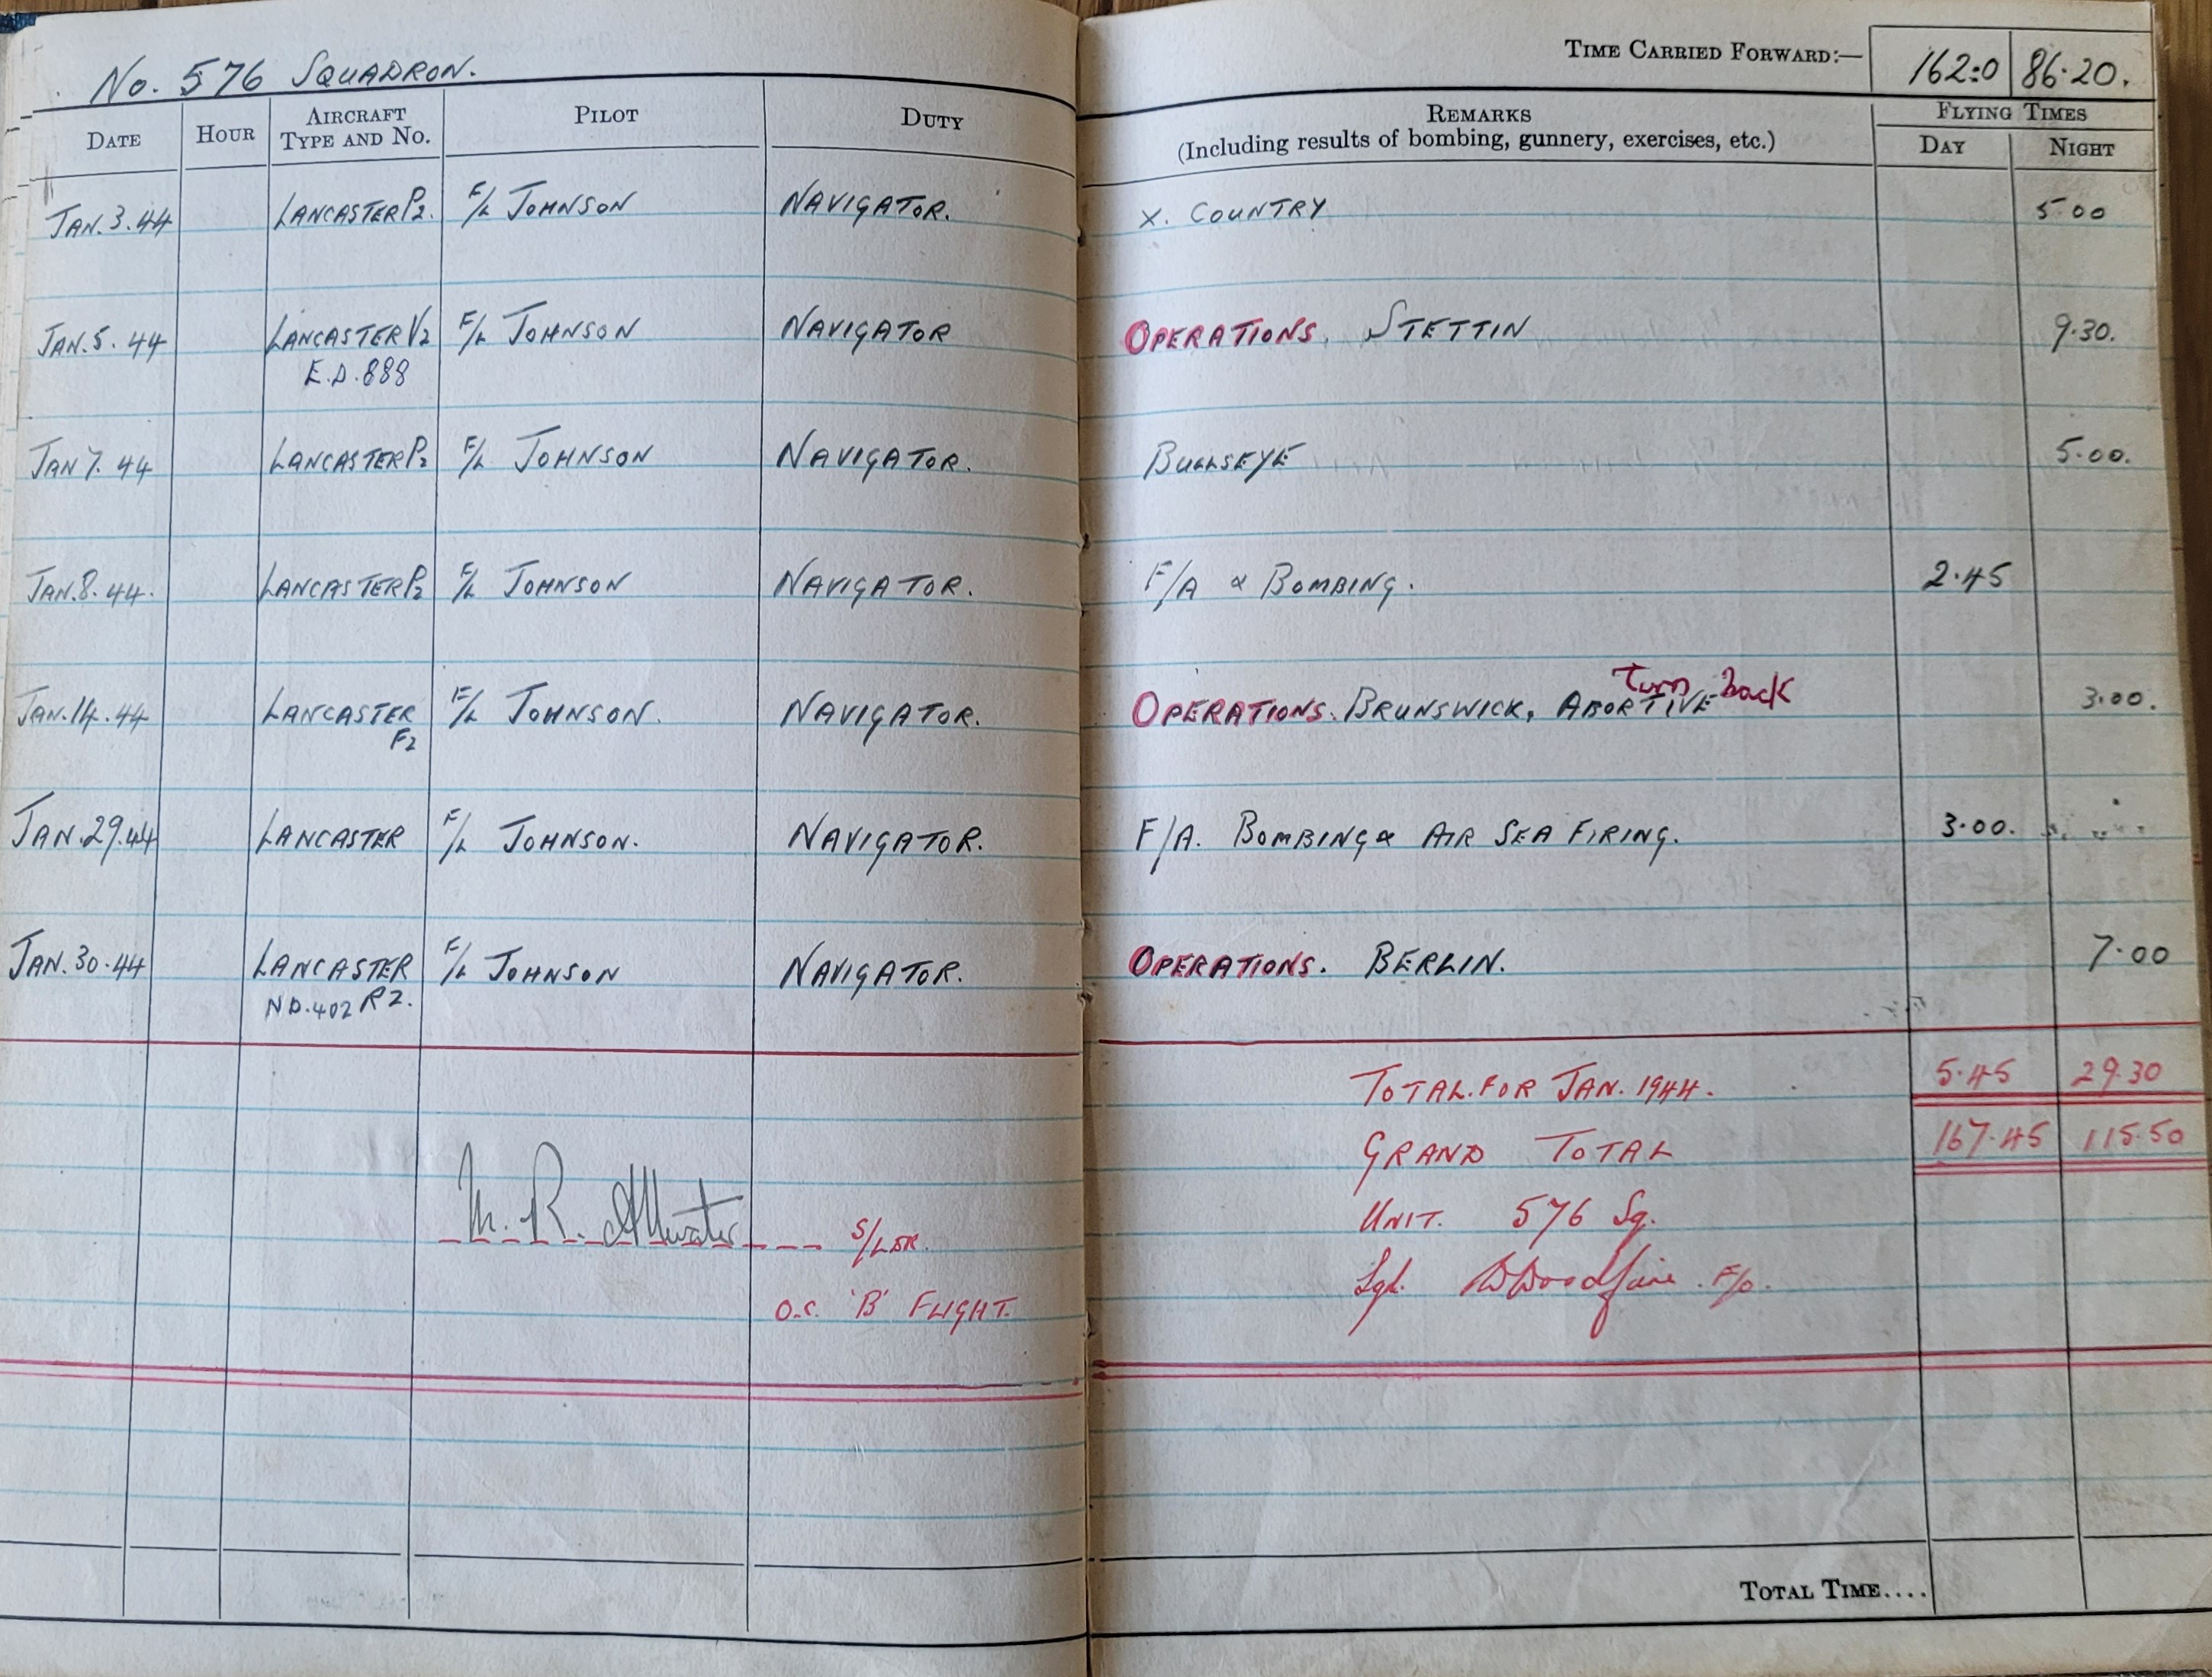 No. 576 SQUADRON.
TIME CARRIED FORWARD:— 162:0 86.20.
DATE HOUR AIRCRAFT TYPE AND NO. PILOT DUTY REMARKS (Including results of bombing, gunnery, exercises, etc.) FLYING TIMES DAY NIGHT
JAN. 3. 44 LANCASTER P2. F/L JOHNSON NAVIGATOR. X. COUNTRY 5.00
JAN. 5. 44 LANCASTER V2 F/L JOHNSON NAVIGATOR OPERATIONS. STETTIN 9.30.
E.D. 888
JAN 7. 44 LANCASTER P2 F/L JOHNSON NAVIGATOR. BULLSEYE 5.00.
JAN. 8. 44. LANCASTER P2 F/L JOHNSON NAVIGATOR. F/A & BOMBING. 2.45
Turn Back
JAN. 14. 44 LANCASTER F/L JOHNSON. NAVIGATOR. OPERATIONS. BRUNSWICK, ABORTIVE 3.00.
F2
JAN. 29. 44 LANCASTER F/L JOHNSON. NAVIGATOR. F/A. BOMBING & AIR SEA FIRING. 3.00.
JAN. 30. 44 LANCASTER F/L JOHNSON NAVIGATOR. OPERATIONS. BERLIN. 7.00
ND. 402 R2.
TOTAL. FOR JAN. 1944. 5.45 29.30
GRAND TOTAL 167.45 115.50
UNIT. 576 Sq.
M. R. Attwater S/LDR.
O.C. 'B' FLIGHT.
F/O.
TOTAL TIME....